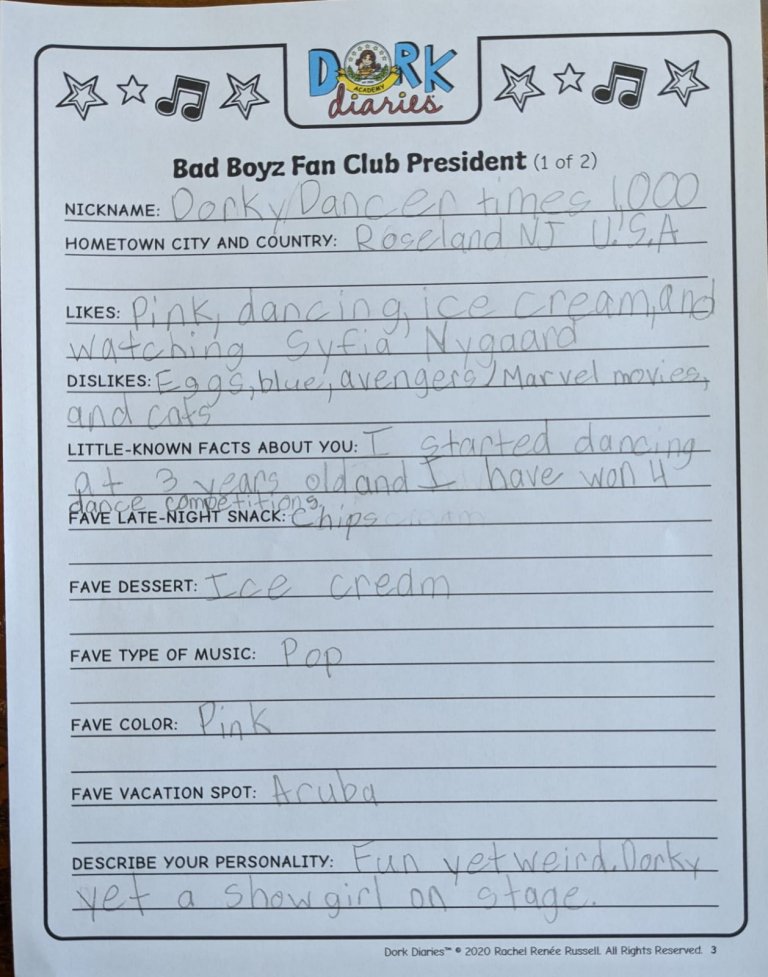 DORK
ACADEMY
diaries
Bad Boyz Fan Club President (1 of 2)
NICKNAME: Dorky/Dancer times 1,000
HOMETOWN CITY AND COUNTRY: Roseland NJ U.S.A
LIKES: Pink, dancing, ice cream, and
watching Syfia Nygaard
DISLIKES: Eggs, blue, avengers/Marvel movies,
and cats
LITTLE-KNOWN FACTS ABOUT YOU: I started dancing
at 3 years old and I have won 4
dance competitions.
FAVE LATE-NIGHT SNACK: Chips
FAVE DESSERT: Ice cream
FAVE TYPE OF MUSIC: Pop
FAVE COLOR: Pink
FAVE VACATION SPOT: Aruba
DESCRIBE YOUR PERSONALITY: Fun yet weird. Dorky
yet a showgirl on stage.
Dork Diaries™ © 2020 Rachel Renée Russell. All Rights Reserved. 3